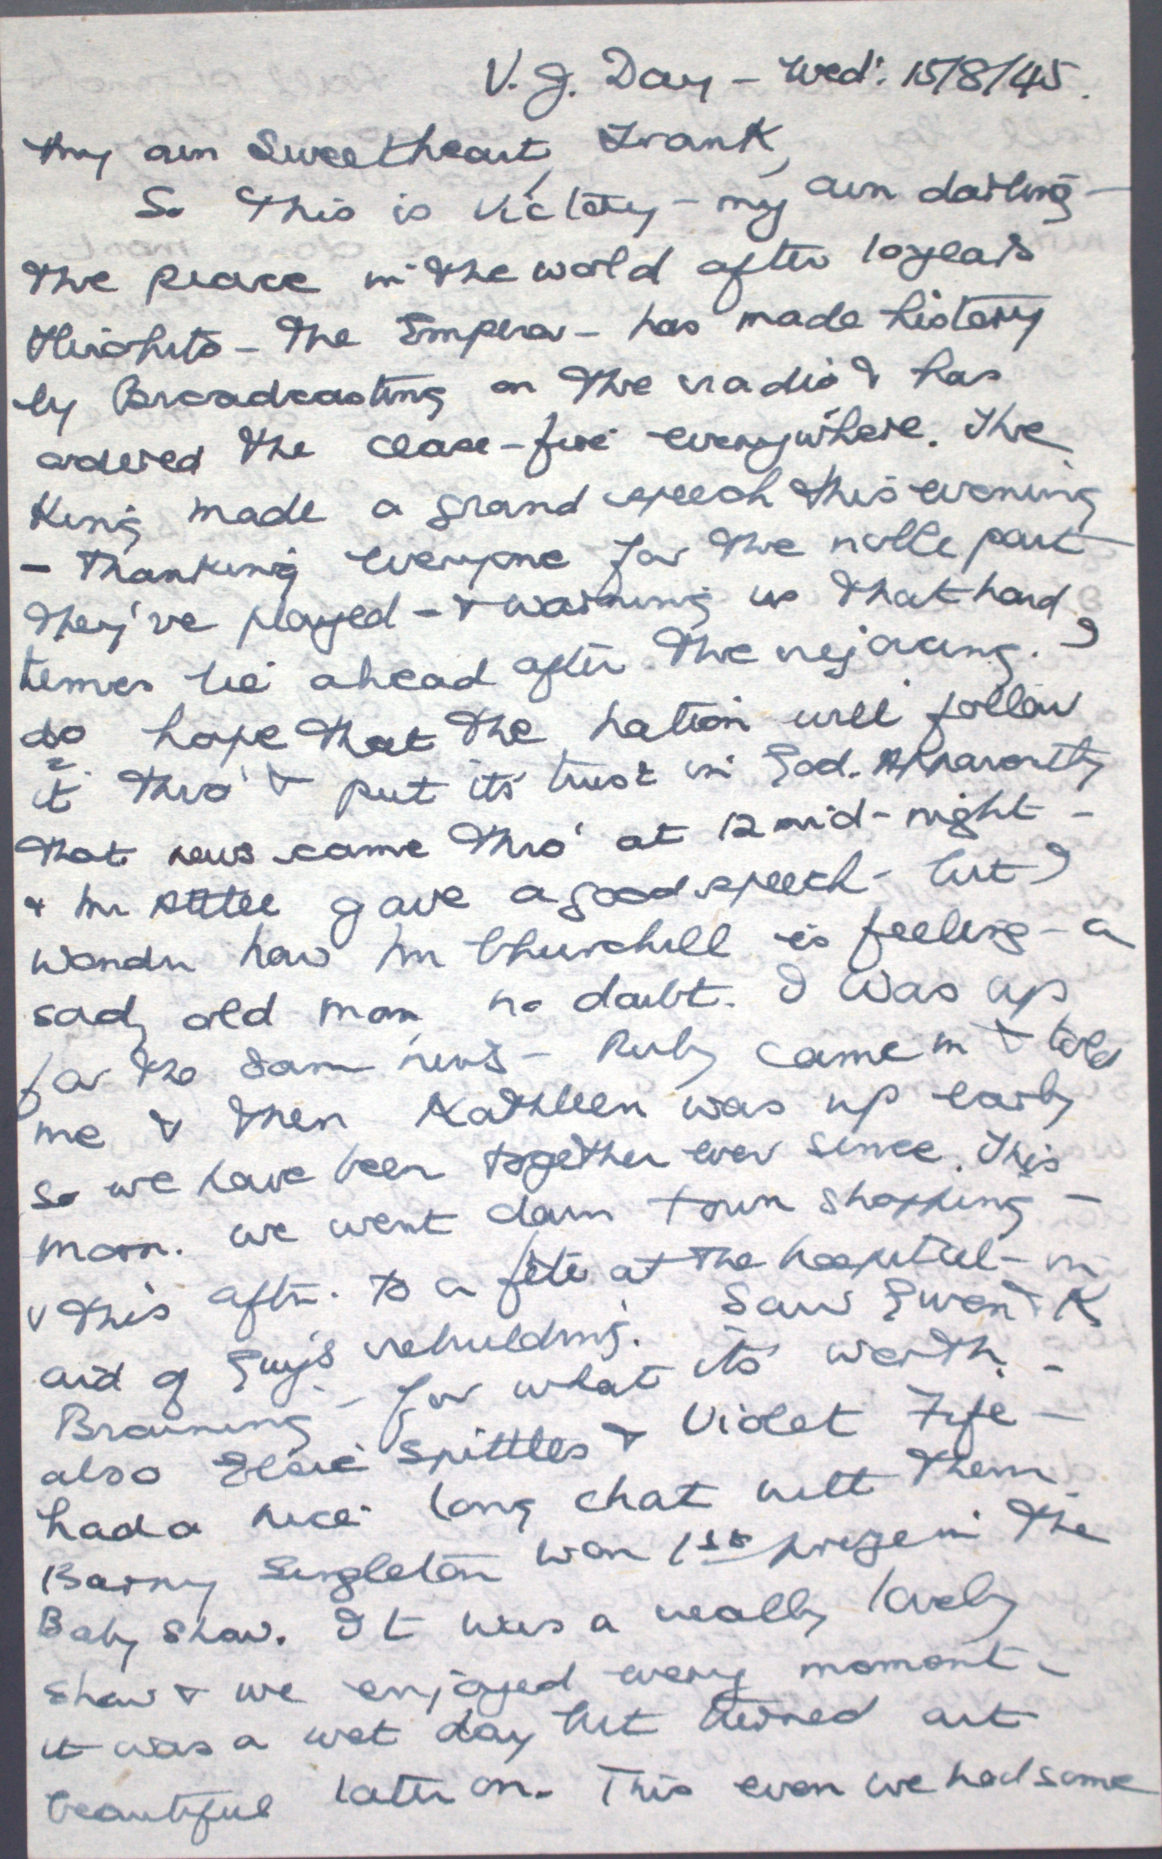 V. J. Day – Wed: 15/8/45.
My ain Sweetheart, Frank,
So this is Victory – my ain darling –
the peace in the world after 10 years
Hirohito – the Emperor – has made history
by Broadcasting on the radio & has
ordered the cease-fire everywhere. The
King made a grand speech this evening
– thanking everyone for the noble part
they've played – & warning us that hard
times lie ahead after the rejoicing. I
do hope that the nation will follow
it thro' & put its trust in God. Apparently
that news came thro' at 12 mid-night –
& Mr Attlee gave a good speech – but I
wonder how Mr Churchill is feeling – a
sad, old man, no doubt. I was up
for the 8am news – Ruby came in & told
me & then Kathleen was up early
so we have been together ever since. This
morn. we went down town shopping –
& this aftn. to a fête at the hospital – in
aid of Guy's rebuilding. Saw Gwen & K
Browning – for what its worth. –
also Elsie Spittles & Violet Fife –
had a nice long chat with them
Barry Singleton won 1st prize in the
Baby Show. It was a really lovely
show & we enjoyed every moment –
it was a wet day but turned out
beautiful later on. This even we had some